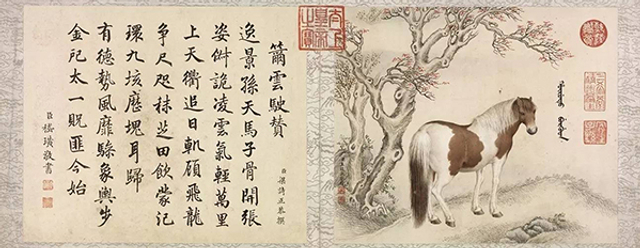 籋雲駛贊
臣梁詩正恭撰
逸景孫天馬子骨開張
姿俶詭凌雲氣輕萬里
上天衢追日軌顧飛龍
爭尺咫秣芝田飲蒙汜
環九垓歷塊耳歸
有德勢風靡驂象輿步
金祀太一貺匪今始
臣嵇璜敬書